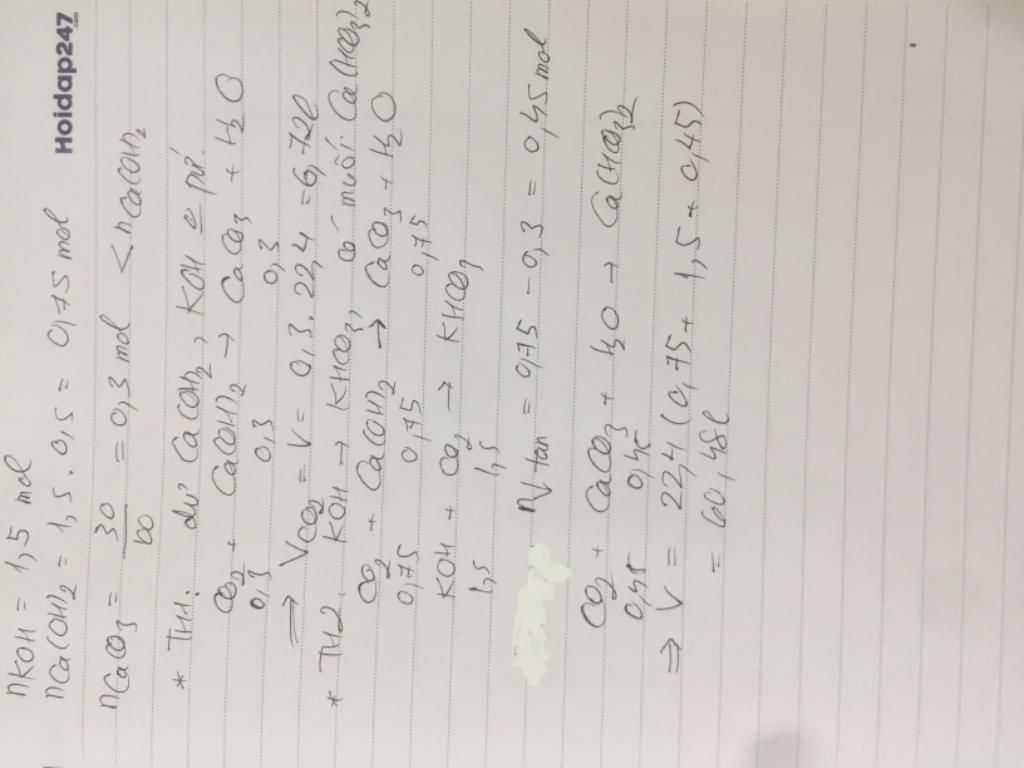 Hoidap247
nKOH = 1,5 mol
nCa(OH)2 = 1,5 . 0,5 = 0,75 mol
nCaCO3 = 30/100 = 0,3 mol < nCa(OH)2
* TH1: dư Ca(OH)2, KOH ko pứ.
CO2 + Ca(OH)2 → CaCO3 + H2O
0,3 0,3 0,3
⇒ VCO2 = V = 0,3 . 22,4 = 6,72l
* TH2. KOH → KHCO3, có muối Ca(HCO3)2
CO2 + Ca(OH)2 → CaCO3 + H2O
0,75 0,75 0,75
KOH + CO2 → KHCO3
1,5 1,5
n↓ tan = 0,75 - 0,3 = 0,45 mol
CO2 + CaCO3 + H2O → Ca(HCO3)2
0,45 0,45
⇒ V = 22,4 (0,75 + 1,5 + 0,45)
= 60,48l